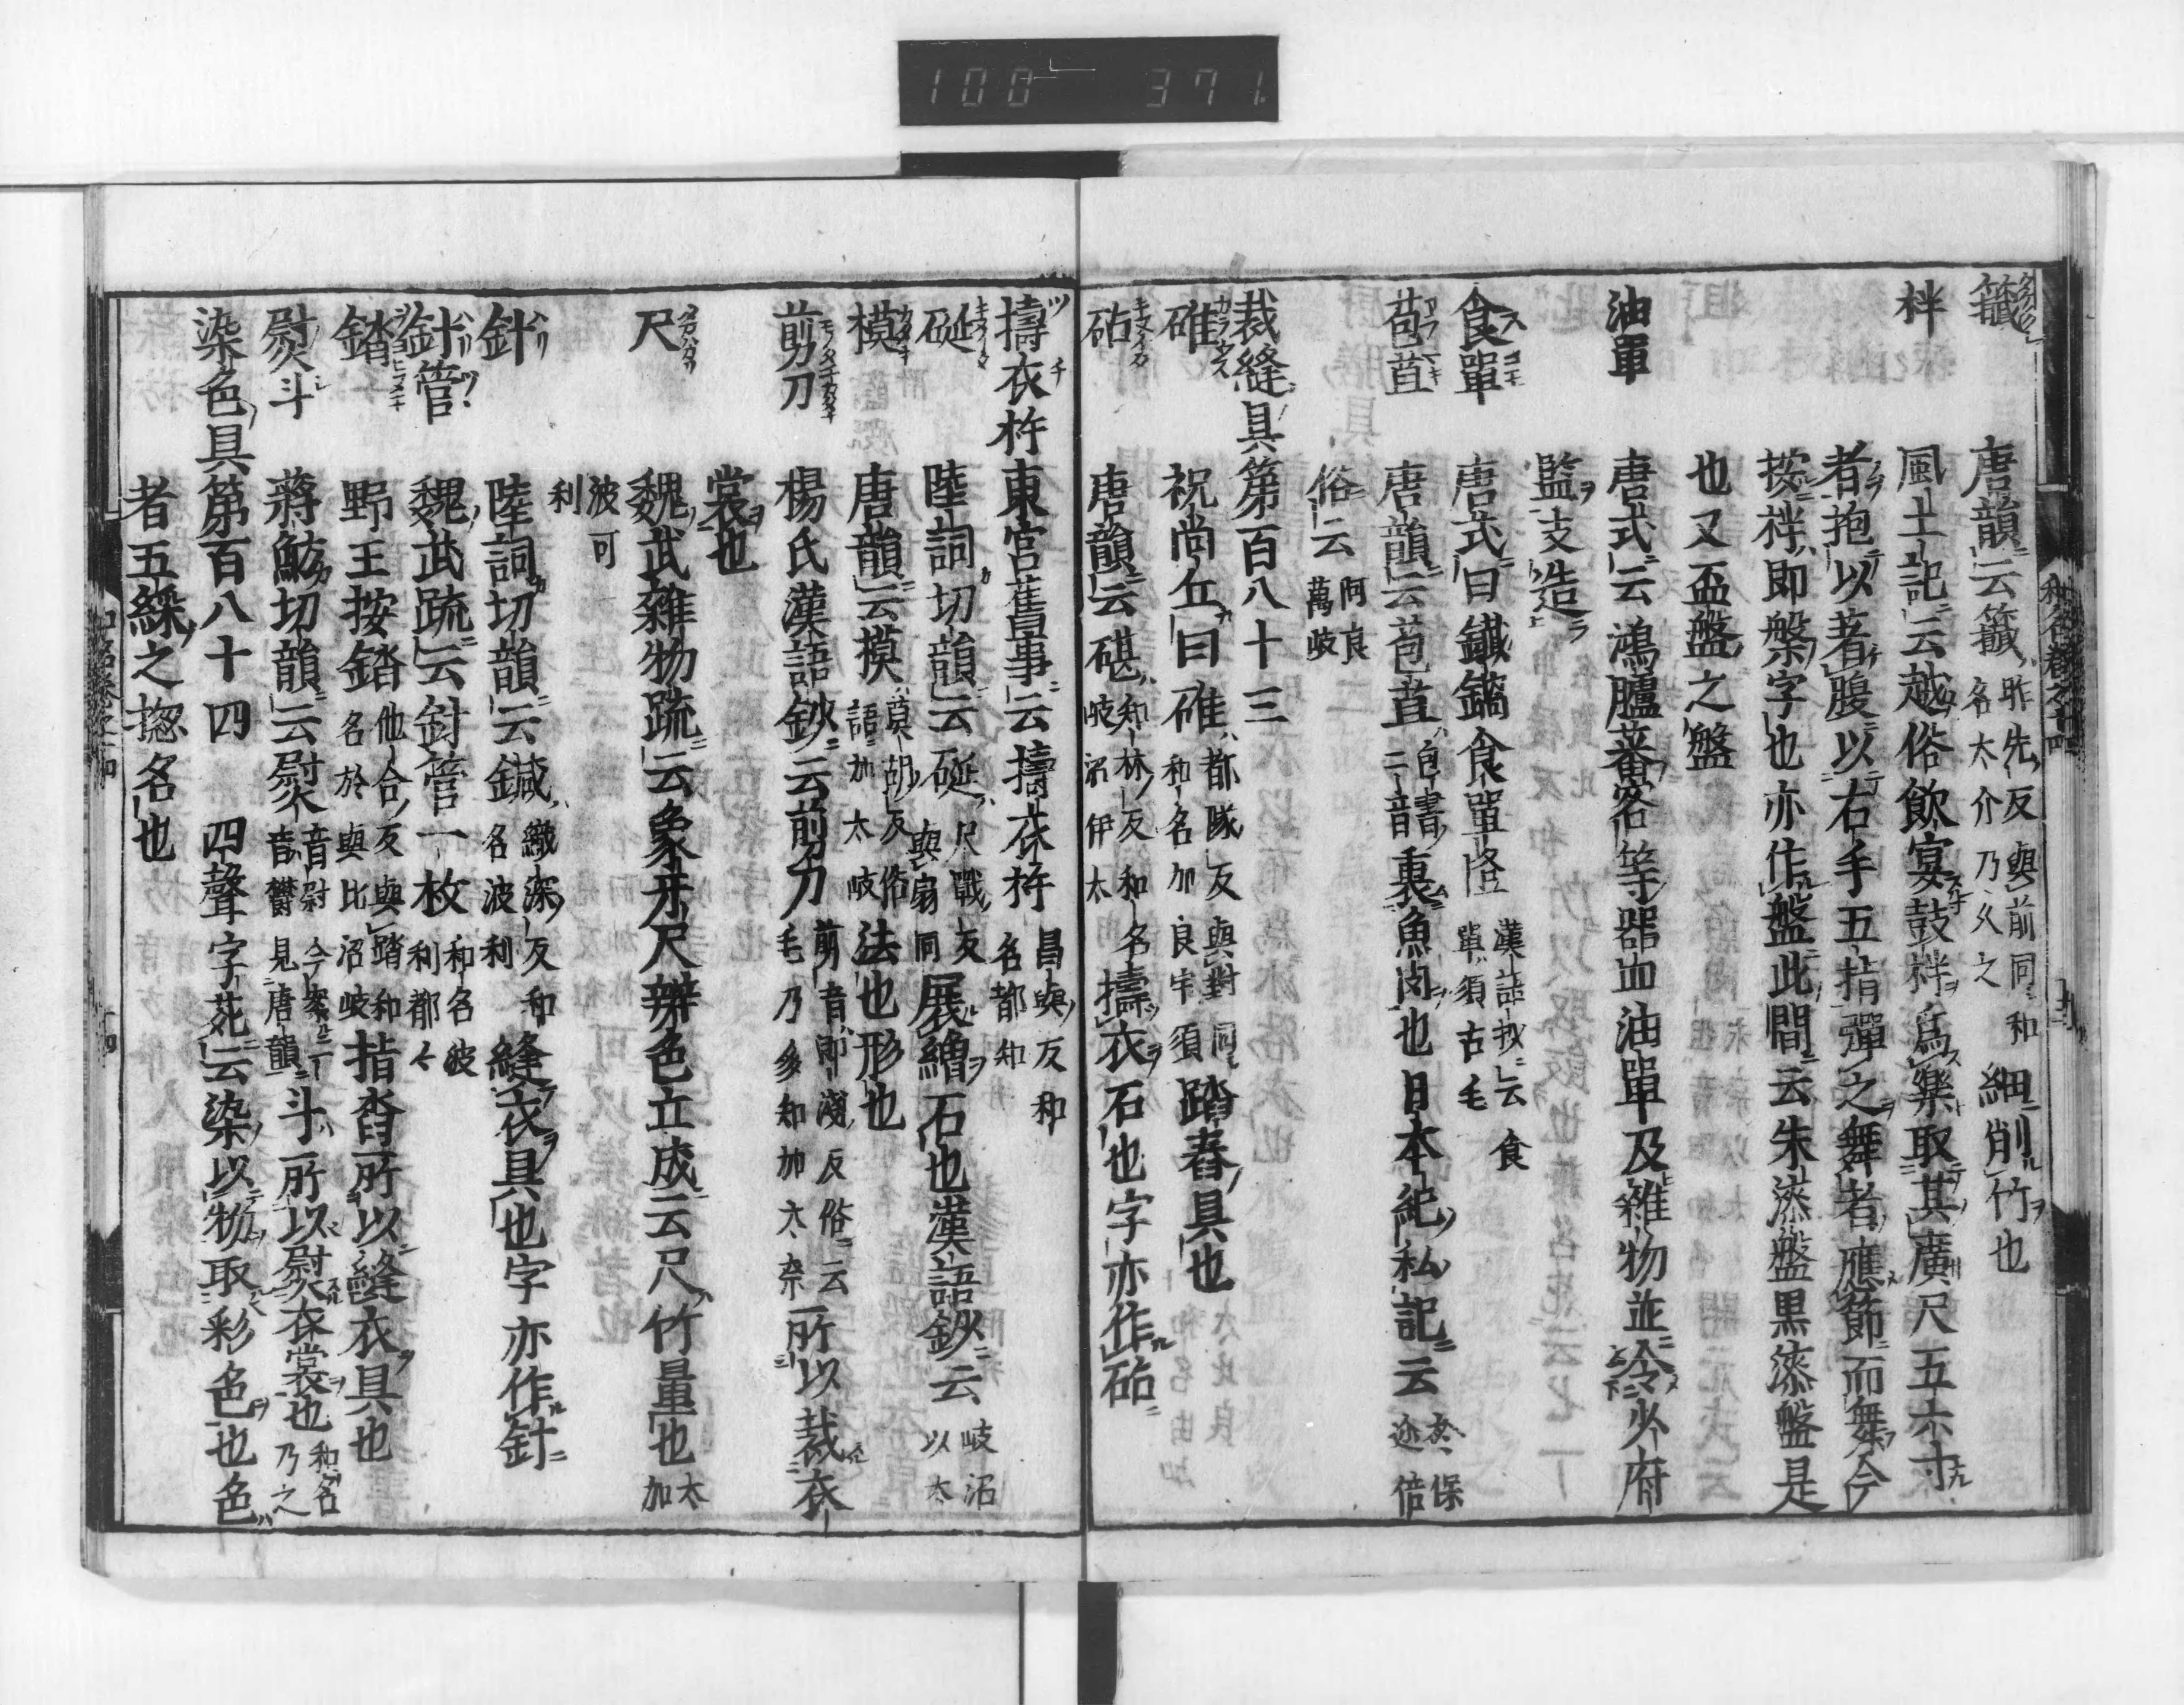 100 371
籤 唐韻云籤 昨先反與前同和名太介乃久之 細削竹也
柈 風土記云越俗飲宴鼓柈爲樂取其廣尺五六寸
者抱以著腹以右手五指彈之舞者應節而舞今
按柈即槃字也亦作盤此間云朱漆盤黒漆盤是
也又盃盤之盤
油單 唐式云鴻臚蕃客等器皿油單及雜物並令少府
監支造
食單 唐式曰鐵鍋食單 漢語抄云食單須古毛
苞苴 唐韻云苞苴 二音 裹魚肉也日本紀私記云
俗云 阿良萬岐
裁縫具第百八十三
碓 祝尚丘曰碓 都隊反與對同和名加良宇須 踏舂具也
砧 唐韻云碪 知林反和名岐沼伊太 擣衣石也字亦作砧
擣衣杵 東宮舊事云擣衣杵 昌與反和名都知
碾 陸詞切韻云 尺戰反與扇同 展繒石也漢語鈔云 岐沼以太
模 唐韻云模 莫胡反俗語加太岐 法也形也
剪刀 楊氏漢語鈔云剪刀 剪音即淺反俗云毛乃多知加太奈 所以裁衣
裳也
尺 魏武雜物疏云象牙尺辨色立成云尺竹量也 太加
波可利
針 陸詞切韻云鍼 織深反和名波利 縫衣具也字亦作針
針管 魏武疏云針管一枚 和名波利都々
錔 野王按錔 他合反與踏同 和名於與比沼岐 指沓所以縫衣具也
熨斗 蔣魴切韻云熨 音尉今案一音鬱見唐韻 斗所以熨衣裳也 和名乃之
染色具第百八十四 四聲字苑云染以物取彩色也色
者五綵之惣名也
和名卷之十四